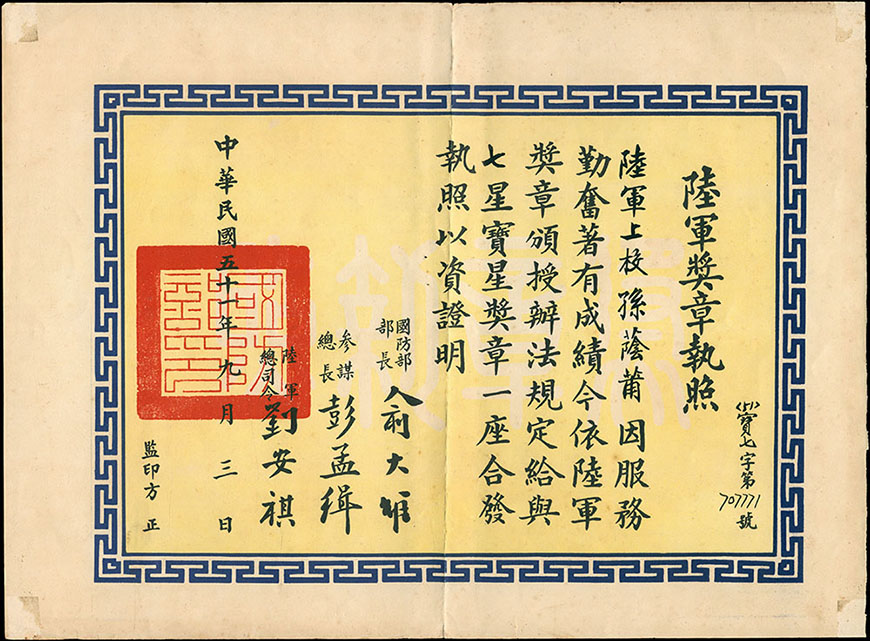 陸軍獎章執照
(51)寶七字第707771號
陸軍上校孫蔭莆因服務
勤奮著有成績今依陸軍
獎章頒授辦法規定給與
七星寶星獎章一座合發
執照以資證明
國防部部長俞大維
參謀總長彭孟緝
陸軍總司令劉安祺
中華民國五十一年九月三日
監印方正